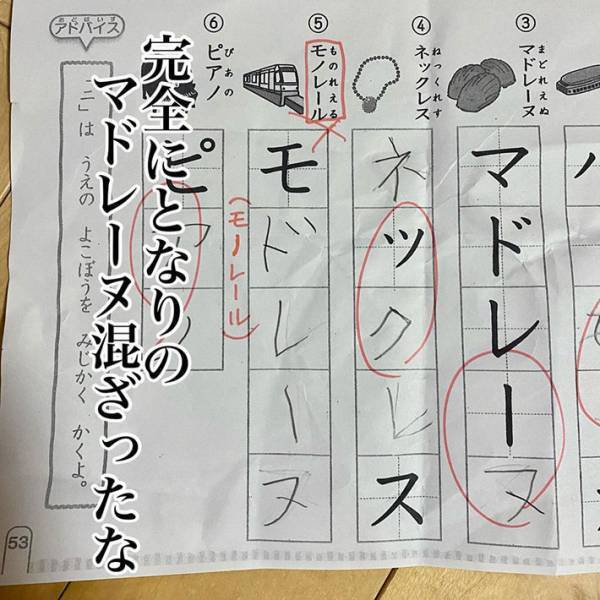 ③
まどれえぬ
マドレーヌ
マドレーヌ
④
ねっくれす
ネックレス
ネックレス
⑤
ものれえる
モノレール
モドレーヌ
(モノレール)
⑥
ぴあの
ピアノ
ピアノ
完全にとなりの
マドレーヌ混ざったな
あどばいす
アドバイス
ニ」は うえの よこぼうを みじかく かくよ。
53